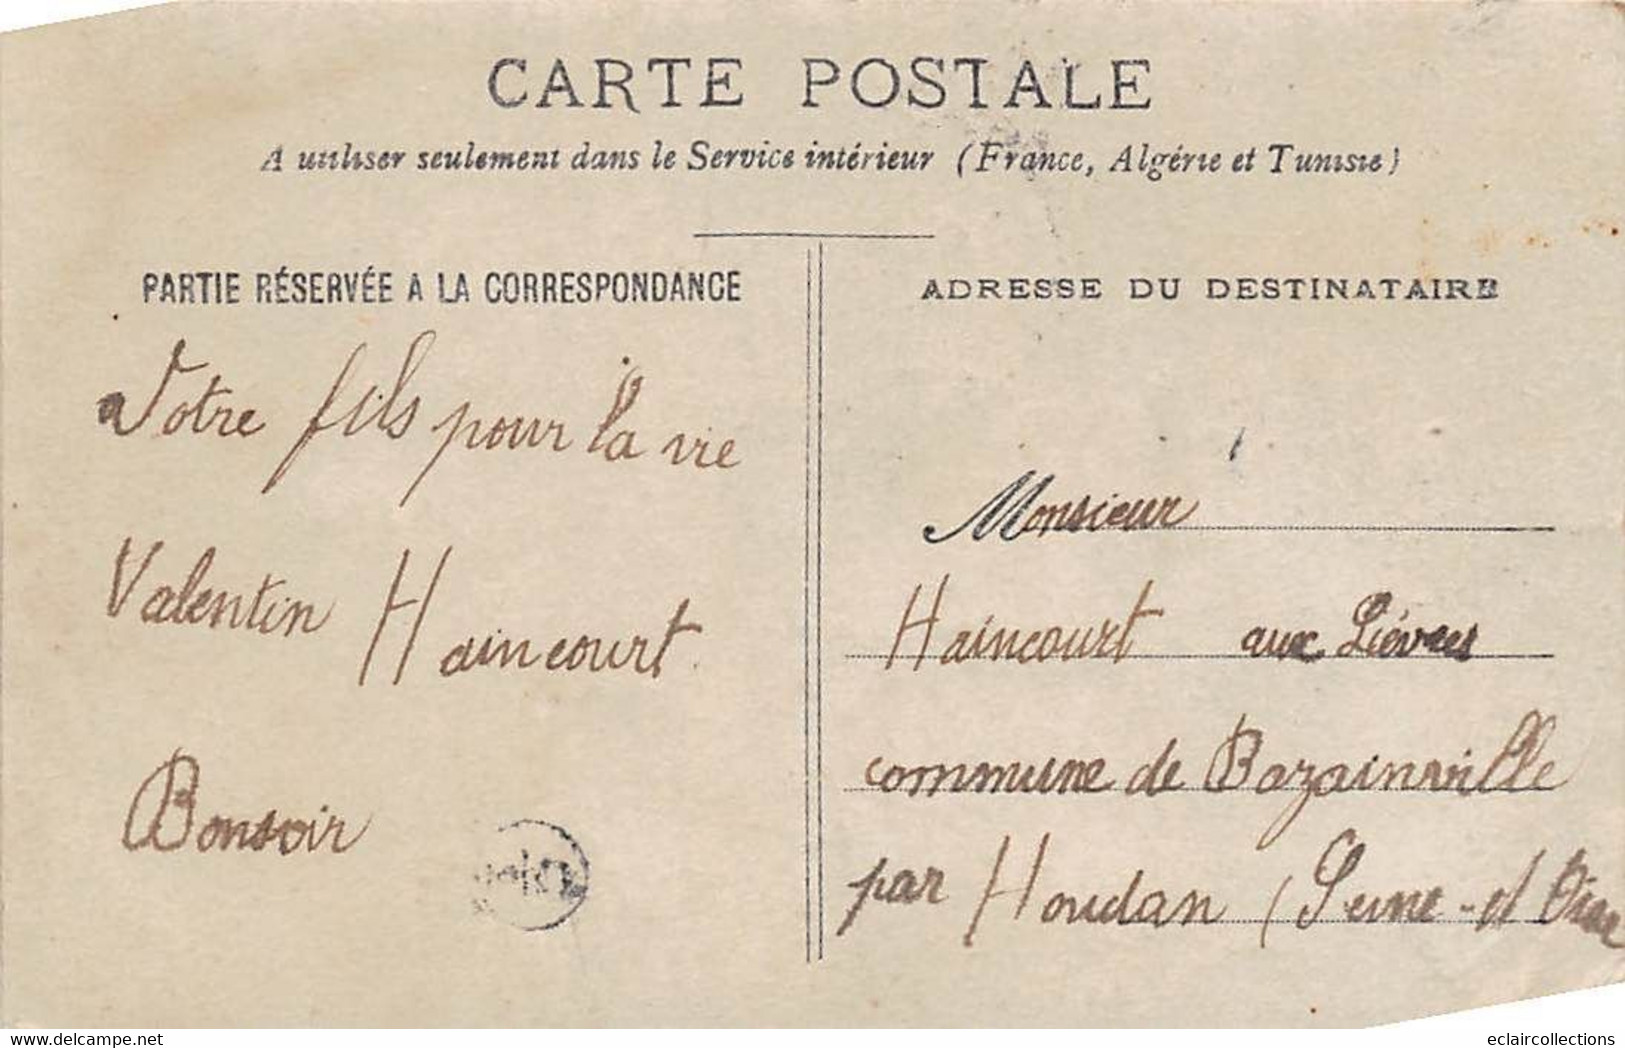 CARTE POSTALE
A utiliser seulement dans le Service intérieur (France, Algérie et Tunisie)
PARTIE RÉSERVÉE A LA CORRESPONDANCE
Votre fils pour la vie
Valentin Haincourt
Bonsoir
ADRESSE DU DESTINATAIRE
Monsieur
Haincourt aux Lièvres
commune de Bazainville
par Houdan (Seine-et Oise
eclaircollections